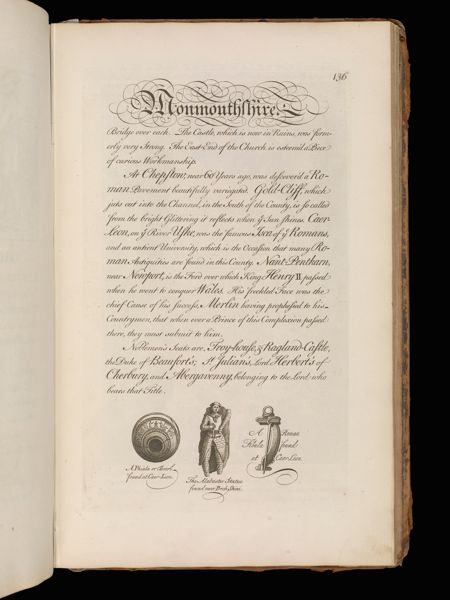 136
Monmouthshire.
Bridge over each. The Castle, which is now in Ruins, was form-
erly very Strong. The East End of the Church is esteem'd a Piece
of curious Workmanship.
At Chepstow, near 60 Years ago, was discover'd a Ro-
man Pavement beautifully variegated. Gold-Cliff, which
juts out into the Channel, in the South of the County, is so called
from the bright Glittering it reflects when yͤ Sun shines. Caer-
Leon, on yͤ River Uske, was the famous Isca of yͤ Romans,
and an antient University, which is the Occasion that many Ro-
man Antiquities are found in this County. Nant-Pentkarn,
near Newport, is the Ford over which King Henry II passed
when he went to conquer Wales. His freckled Face was the
chief Cause of his Success, Merlin having prophesied to his
Countrymen, that when ever a Prince of this Complexion passed
there, they must submit to him.
Noblemen's Seats are, Troy-house, & Ragland-Castle,
the Duke of Beaufort's; St. Julian's, Lord Herbert's of
Cherbury, and Abergavenny, belonging to the Lord who
bears that Title.
A Phiala or Bowl
found at Caer-Leon.
The Alabaster Statue
found near
A Roman
Fibula found
at Caer-Leon.